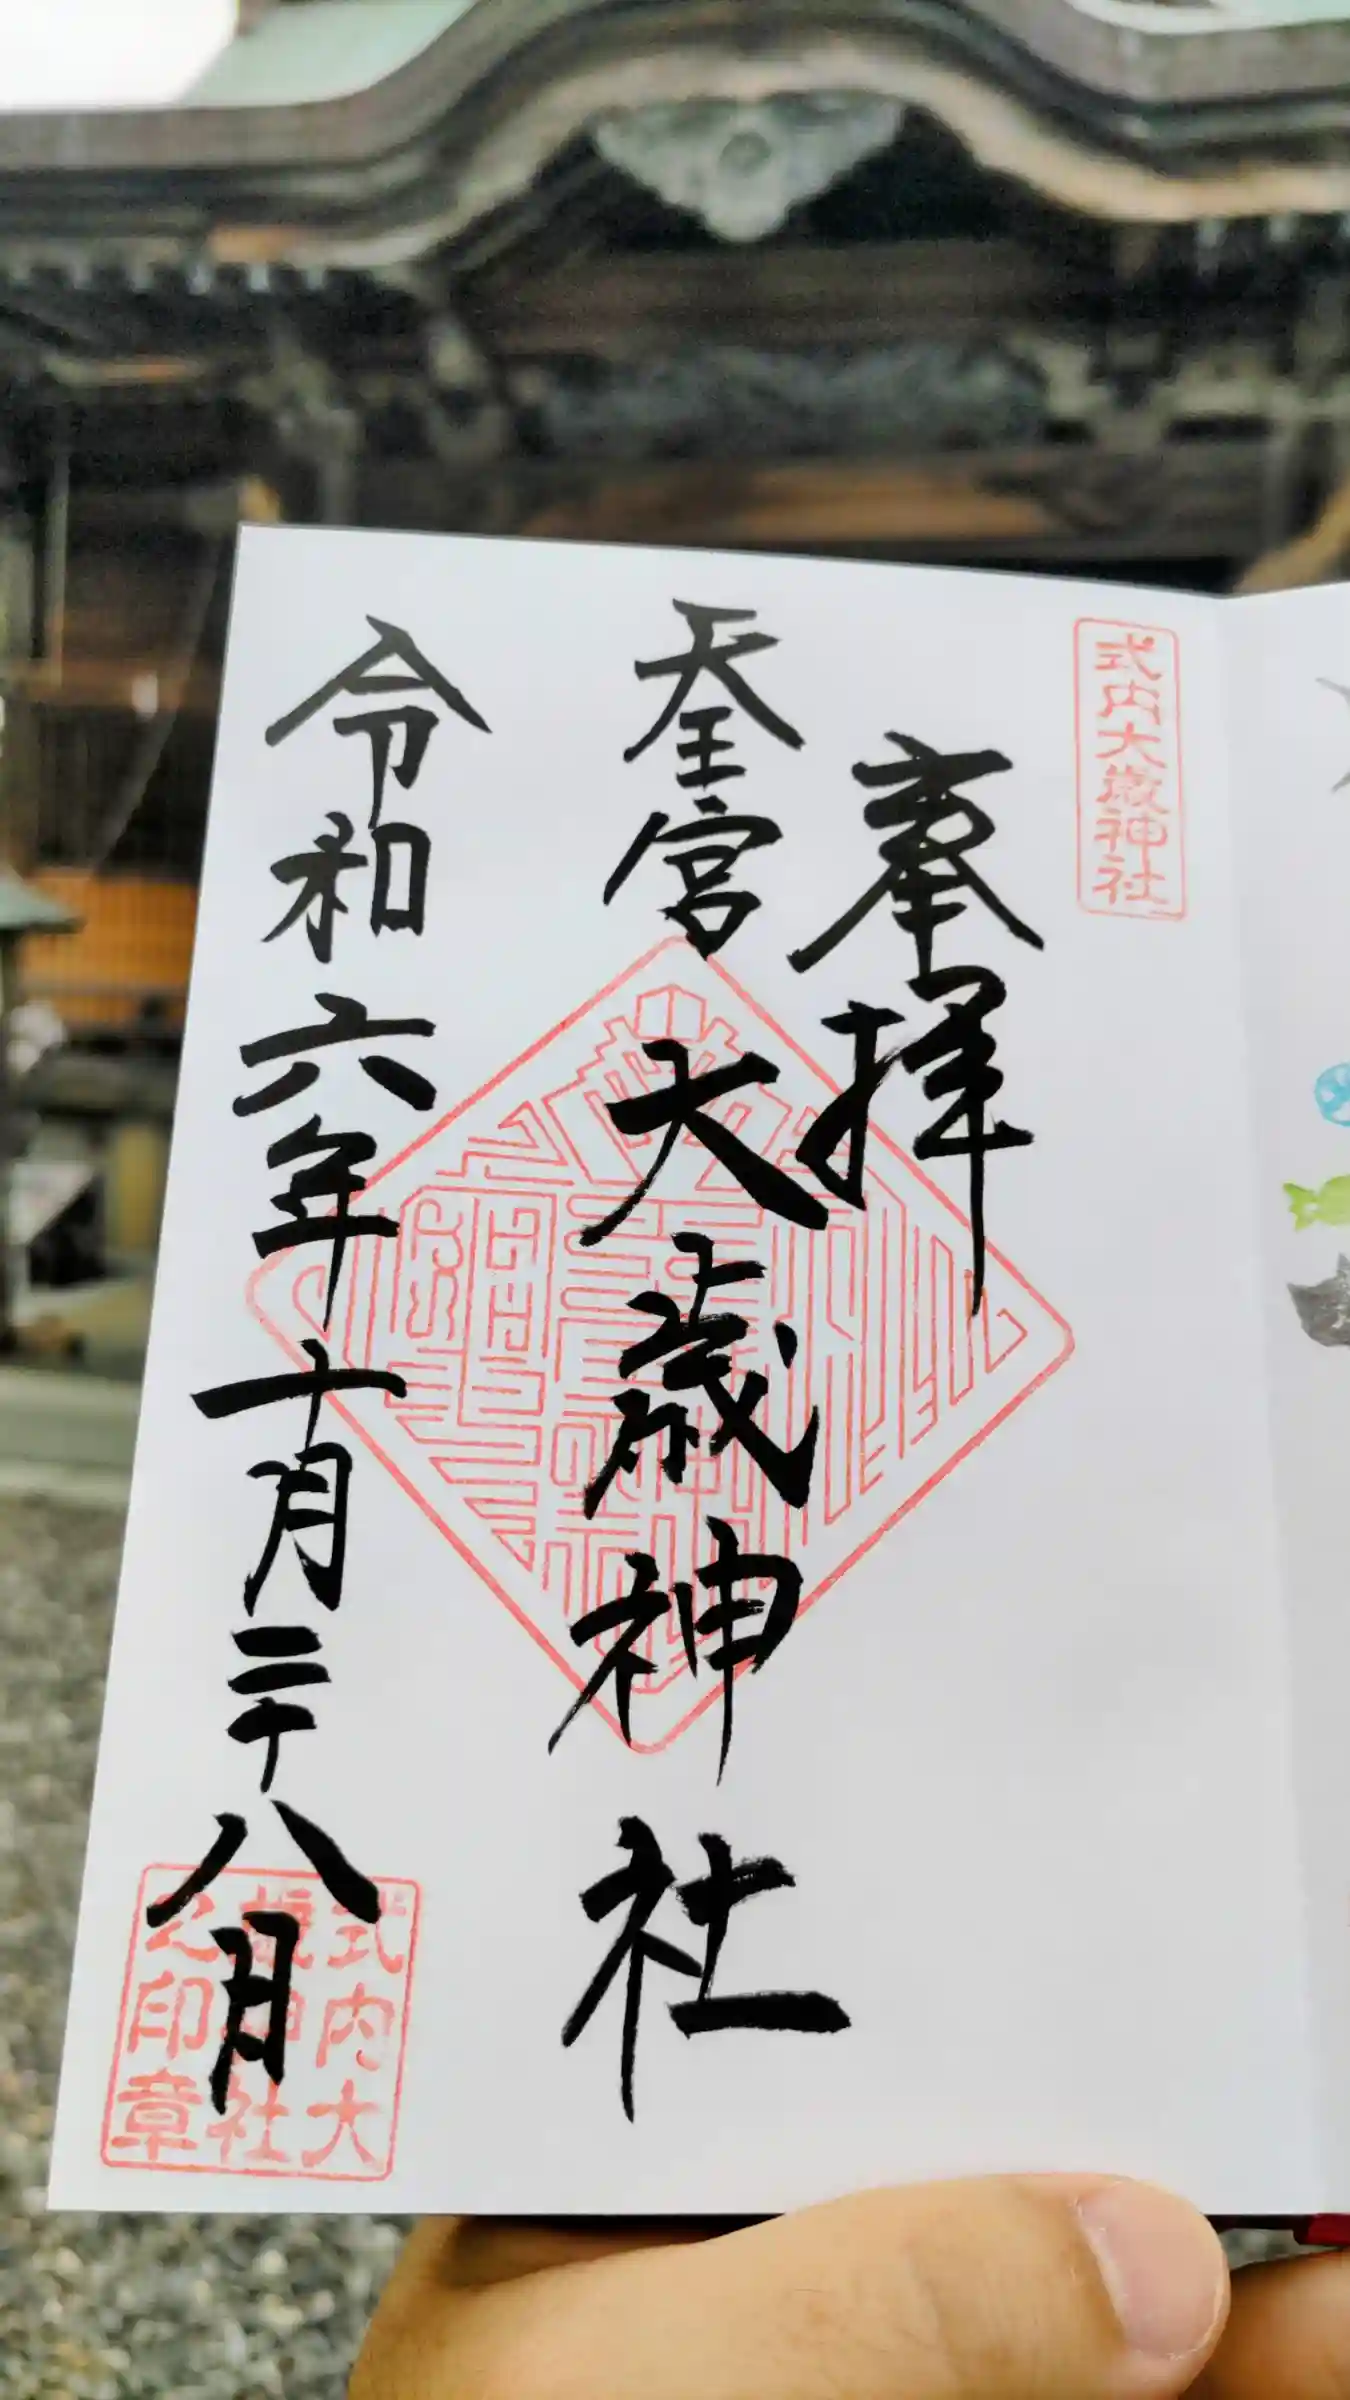 式内大歳神社
奉拝
天王宮
大歳神社
令和六年十月二十八日
式内大
歳神社
之印章